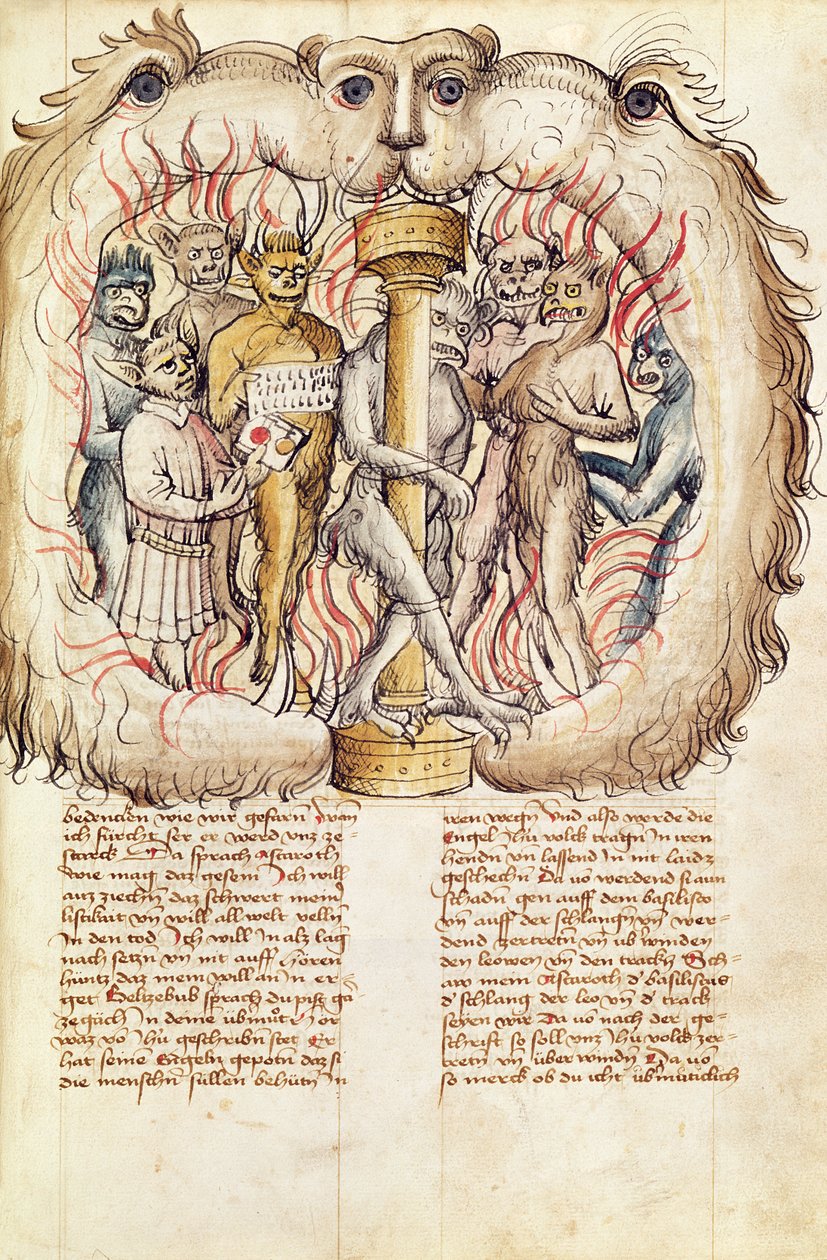 bedencken wie wir gefarn Wan
ich fürcht ser er werd vnz ze-
starck Da sprach Astaroth
wie mag daz gesein Ich will
auz ziechn daz schwert meinr
listikait vn will all welt velln
In den tod Ich will In alz lang
nach setzn vn nit auff hören
hüntz daz mein will an In er-
get Belizebub sprach du pist gar
ze gäch In deine übmuot hör
waz vo Ihu geschribn stet Er
hat seine Engeln gepotn daz si
die menschn süllen behütn In
iren wegn Vnd also werde die
Engel Ihu volck tragn In iren
hendn vn lassend In nit laidz
geschechn Da vo werdend si aun
schadn gen auff dem basilisco
vn auff der schlangn vn wer-
dend zertretn vn üb winden
den leowen vn den track Sch-
aw mein Astaroth d basiliscus
d schlang der leo vn d track
seyen wir Da vo nach der ge-
schrift so soll vnz Ihu volck zer-
tretn vn über windn Da vo
so merck ob du icht übmütiklich